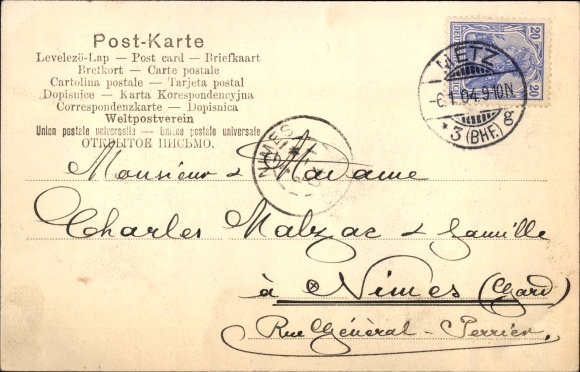 Post-Karte
Levelező-Lap — Post card — Briefkaart
Bretkort — Carte postale
Cartolina postale — Tarjeta postal
Dopisnice — Karta Korespondencyjna
Correspondenzkarte — Dopisnica
Weltpostverein
Union postale universelle — Unione postale universale
ОТКРЫТОЕ ПИСЬМО.
20 20
METZ
-6.1.04.9-10N
* 3 (BHF.) g
NIMES
Monsieur & Madame
Charles Malzac & famille
à Nimes (Gard)
Rue Général-Perrier,